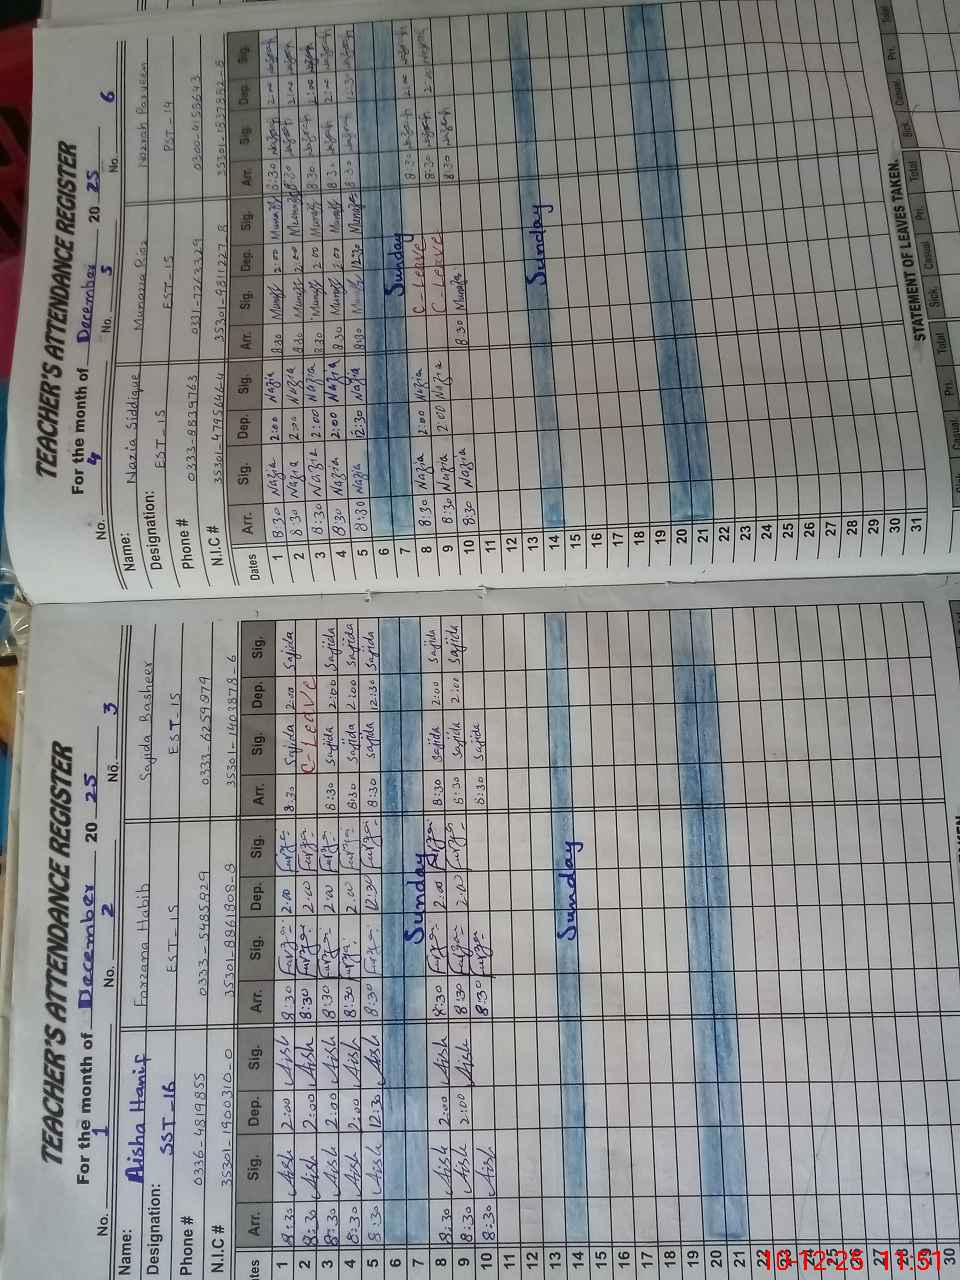 TEACHER'S ATTENDANCE REGISTER
For the month of December 20 25
No. 1 No. 2 No. 3
Name: Aisha Hanif Farzana Habib Sajida Basheer
Designation: SST-16 EST-15 EST-15
Phone # 0336-4819855 0333-5485929 0333-6259979
N.I.C # 35301-1900310-0 35301-8861808-8 35301-1403878-6
Arr. Sig. Dep. Sig. Arr. Sig. Dep. Sig. Arr. Sig. Dep. Sig.
1 8:30 Aish 2:00 Aish 8:30 Farzan 2:00 Farzan 8:30 Sajida 2:00 Sajida
2 8:30 Aish 2:00 Aish 8:30 Farzan 2:00 Farzan C-Leave
3 8:30 Aish 2:00 Aish 8:30 Farzan 2:00 Farzan 8:30 Sajida 2:00 Sajida
4 8:30 Aish 2:00 Aish 8:30 Farzan 2:00 Farzan 8:30 Sajida 2:00 Sajida
5 8:30 Aish 12:30 Aish 8:30 Farzan 12:30 Farzan 8:30 Sajida 12:30 Sajida
6
7 Sunday
8 8:30 Aish 2:00 Aish 8:30 Farzan 2:00 Farzan 8:30 Sajida 2:00 Sajida
9 8:30 Aish 2:00 Aish 8:30 Farzan 2:00 Farzan 8:30 Sajida 2:00 Sajida
10 8:30 Aish 8:30 Farzan 8:30 Sajida
11
12
13
14 Sunday
15
16
17
18
19
20
21
22
23
24
25
26
27
28
29
30
TEACHER'S ATTENDANCE REGISTER
For the month of December 20 25
No. 4 No. 5 No. 6
Name: Nazia Siddique Munazza Riaz Nozrah Parveen
Designation: EST-15 EST-15 PST-14
Phone # 0333-8839763 0331-7263329 0300-4155643
N.I.C # 35301-4795646-4 35301-9811227-8
Dates Arr. Sig. Dep. Sig. Arr. Sig. Dep. Sig. Arr. Sig. Dep. Sig.
1 8:30 Nazia 2:00 Nazia 8:30 2:00 8:30 2:00
2 8:30 Nazia 2:00 Nazia 8:30 2:00 8:30 2:00
3 8:30 Nazia 2:00 Nazia 8:30 2:00 8:30 2:00
4 8:30 Nazia 2:00 Nazia 8:30 2:00 8:30 2:00
5 8:30 Nazia 12:30 Nazia 8:30 12:30 8:30 12:30
6 Sunday
7 8:30 2:00
8 8:30 Nazia 2:00 Nazia C-Leave 8:30 2:00
9 8:30 Nazia 2:00 Nazia C-Leave 8:30
10 8:30 Nazia 8:30
11
12
13 Sunday
14
15
16
17
18
19
20
21
22
23
24
25
26
27
28
29
30
31
STATEMENT OF LEAVES TAKEN.
Casual Pri. Total Sick. Casual Pri. Total Sick. Casual Pri. Total
10-12-25 11:51